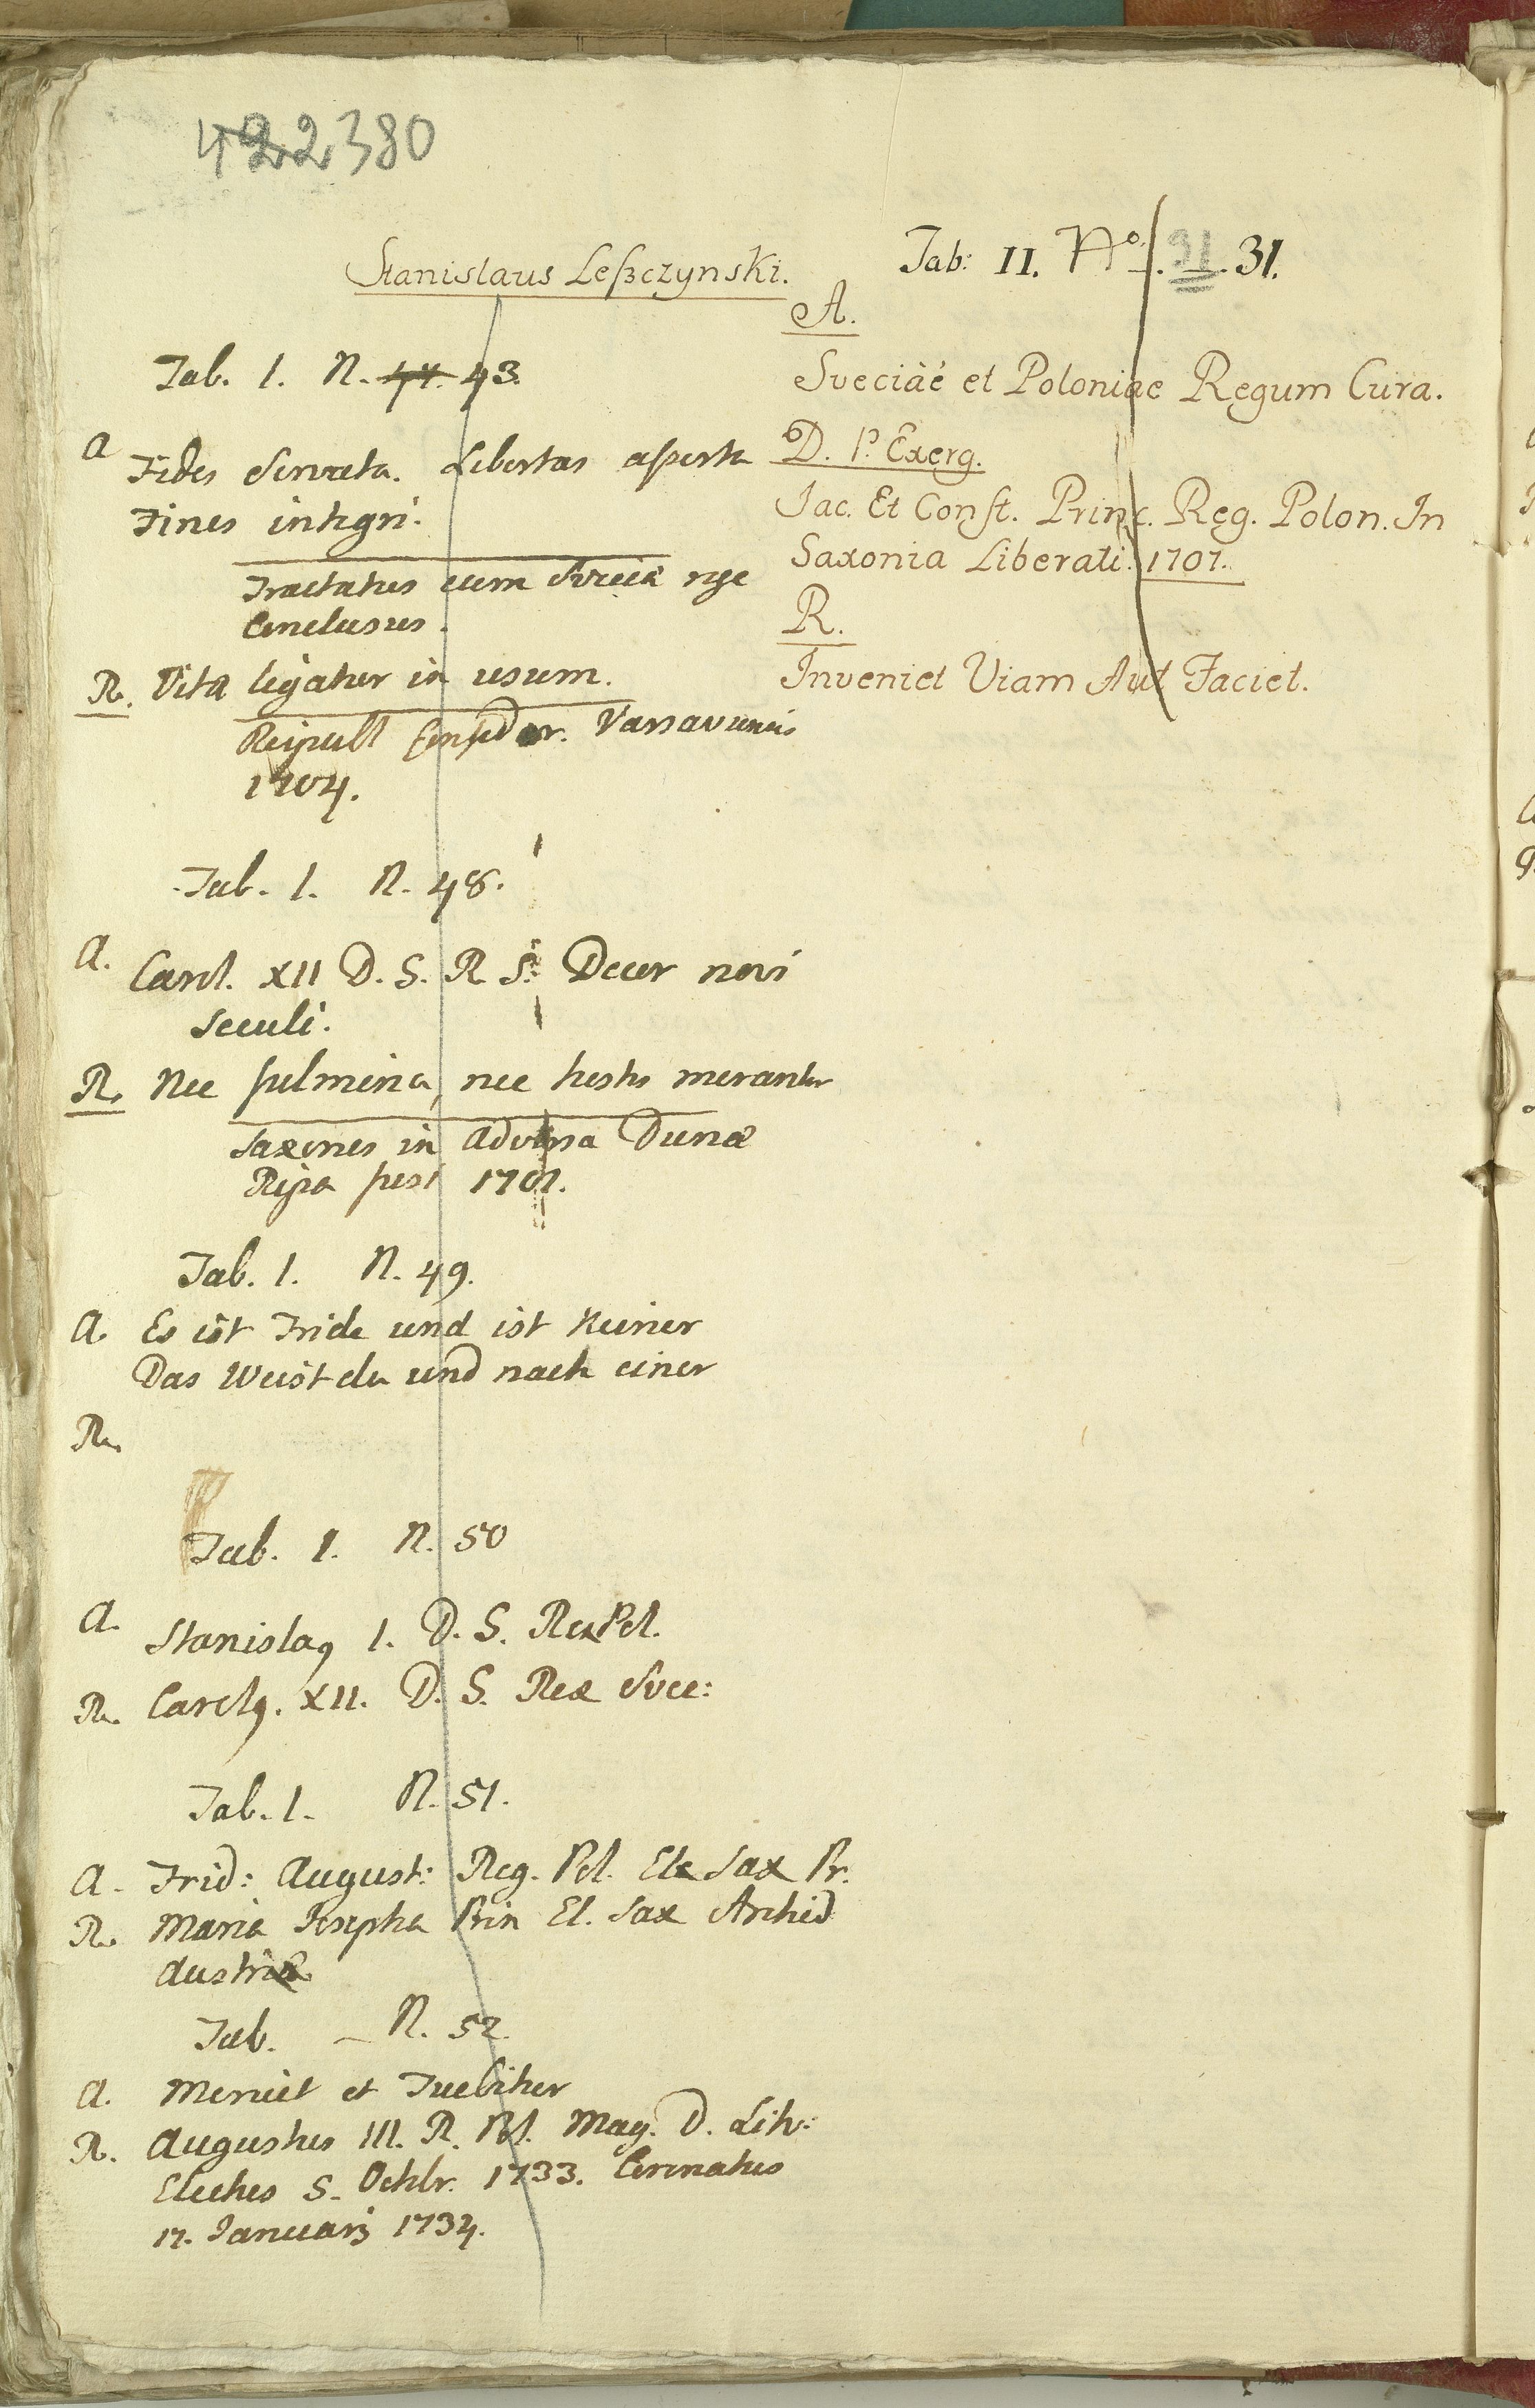 422380
Stanislaus Leszczynski.
Tab. 1. N. 47. 43.
a Fides Servata. Libertas asserta
Fines integri.
Tractatus cum Svecia rege
Conclusus.
R. Vita legatur in usum.
Reipubl Confoder. Varsaviensis
1704.
Tab. 1. N. 48.
a. Carol. XII D. S. R S. Decor novi
Seculi.
R. Nec fulmina, nec hostis morantur
Saxones in adversa Dunæ
Ripa fusi 1701.
Tab. 1. N. 49.
a. Es ist Fride und ist Keiner
Das Weist du und noch einer
R.
Tab. 1. N. 50
a. Stanislaq 1. D. S. Rex Pol.
R. Carolq. XII. D. S. Rex Svec:
Tab. 1. N. 51.
a. Frid: August: Reg. Pol. El Sax Pr.
R. Maria Josepha Prin El. Sax Archid
Austriæ
Tab. N. 52.
a. Meruit et Tuebitur
R. Augustus III. R. Pol. Mag. D. Lith:
Electus 5. Octobr. 1733. Coronatus
17. Januarij 1734.
Tab: II. No. 31. 31.
A.
Sveciaé et Poloniae Regum Cura.
D. P. Exerg.
Jac. Et Const. Princ. Reg. Polon. In
Saxonia Liberati. 1707.
R.
Inveniet Viam Aut Faciet.